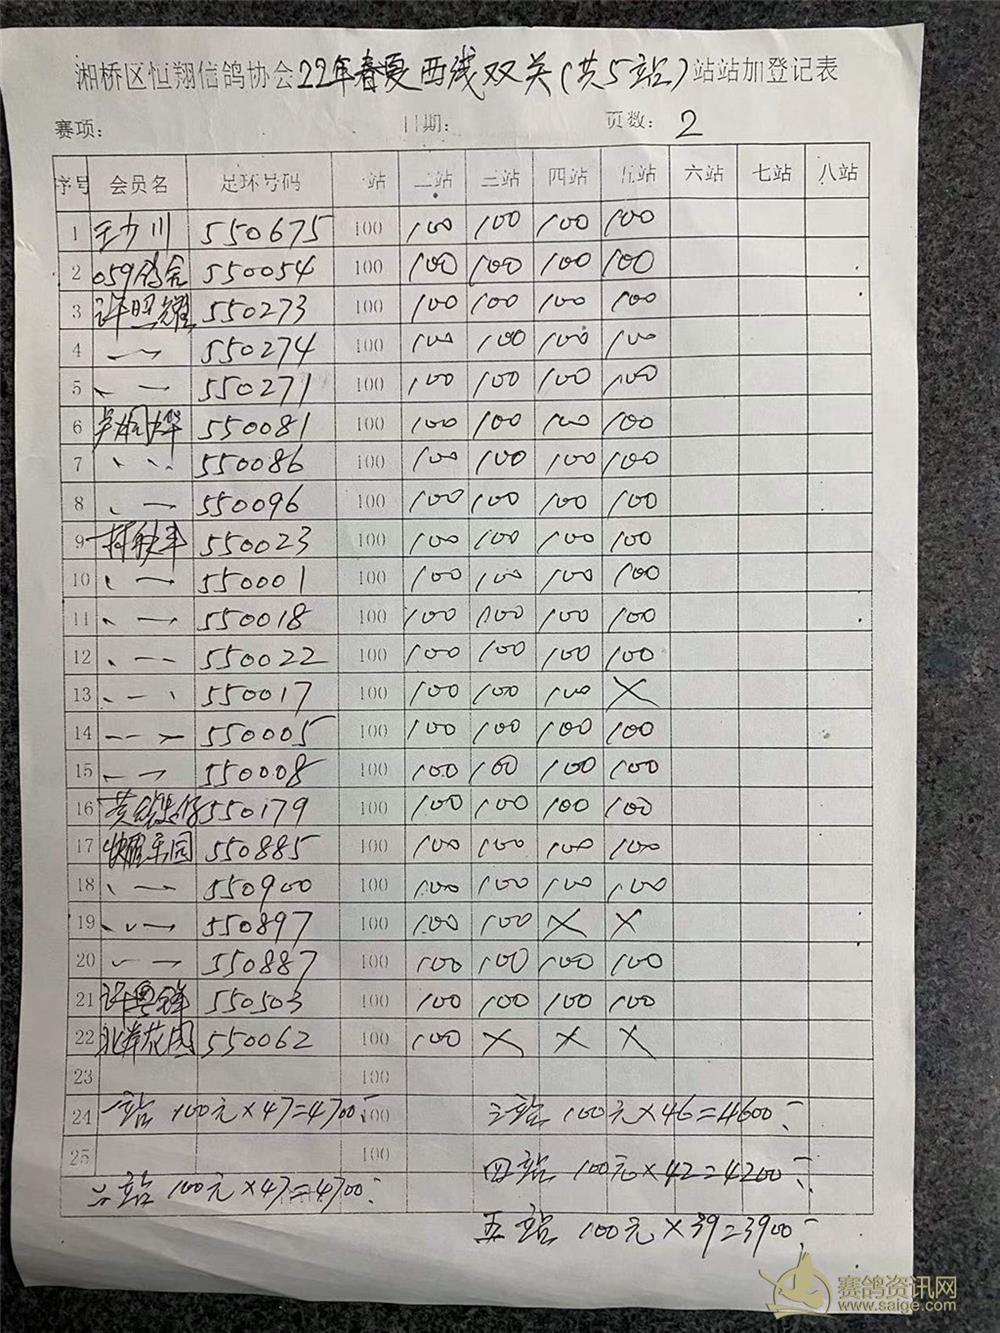 湘桥区恒翔信鸽协会22年春夏西线双关(共5站)站站加登记表
赛项: 日期: 页数: 2
序号 会员名 足环号码 一站 二站 三站 四站 五站 六站 七站 八站
1 王少川 550675 100 100 100 100 100
2 059鸽舍 550054 100 100 100 100 100
3 许照耀 550273 100 100 100 100 100
4 550274 100 100 100 100 100
5 550271 100 100 100 100 100
6 550081 100 100 100 100 100
7 550086 100 100 100 100 100
8 550096 100 100 100 100 100
9 550023 100 100 100 100 100
10 550001 100 100 100 100 100
11 550018 100 100 100 100 100
12 550022 100 100 100 100 100
13 550017 100 100 100 100 ×
14 550005 100 100 100 100 100
15 550008 100 100 100 100 100
16 550179 100 100 100 100 100
17 550885 100 100 100 100 100
18 550900 100 100 100 100 100
19 550897 100 100 100 × ×
20 550887 100 100 100 100 100
21 550503 100 100 100 100 100
22 北岸花园 550062 100 100 × × ×
23 100
24 一站 100元×47=4700 100 三站 100元×46=4600
25 100
四站 100元×42=4200
二站 100元×47=4700
五站 100元×39=3900
赛鸽资讯网
www.saige.com